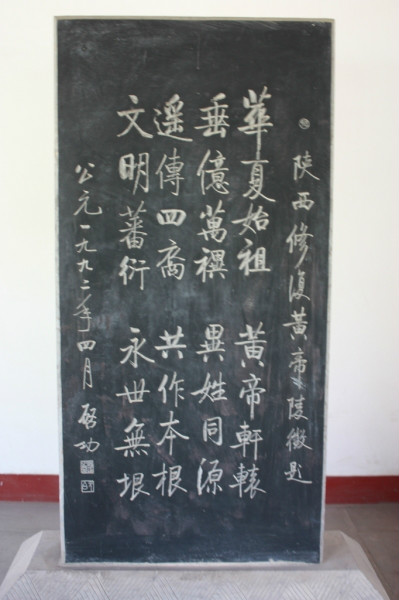 陕西修復黃帝陵徵題
華夏始祖 黃帝軒轅
垂億萬禩 異姓同源
遥傳四裔 共作本根
文明蕃衍 永世無垠
公元一九九二年四月 啓功